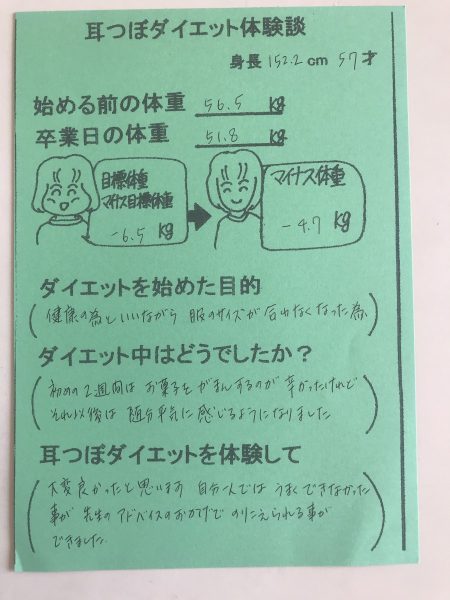 耳つぼダイエット体験談
身長 152.2 cm 57才
始める前の体重 56.5 Kg
卒業日の体重 51.8 Kg
目標体重
マイナス目標体重
-6.5 Kg
マイナス体重
-4.7 Kg
ダイエットを始めた目的
健康の為といいながら 服のサイズが合わなくなった為
ダイエット中はどうでしたか？
初めの2週間は お菓子をがまんするのが 辛かったけれど
それ以後は 随分平気に感じるようになりました
耳つぼダイエットを体験して
大変良かったと思います 自分一人では うまくできなかった
事が 先生のアドバイスのおかげで のりこえられる事が
できました.